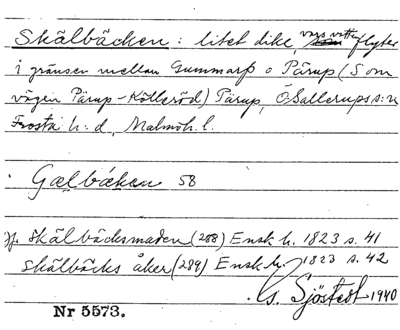 Skälbäcken: litet dike, vars vatten flyter
i gränsen mellan Gummarp o Pärup (S om
vägen Pärup-Kölleröd) Pärup, Ö Sallerups s:n
Frosta h:d, Malmöh. l.
Gælbäken 58
Jf. Skälbäcksmaden (288) Ensk h. 1823 s. 41
Skälbäcks åker (289) Ensk h. 1823 s. 42
s. Sjöstedt 1940
Nr 5573.